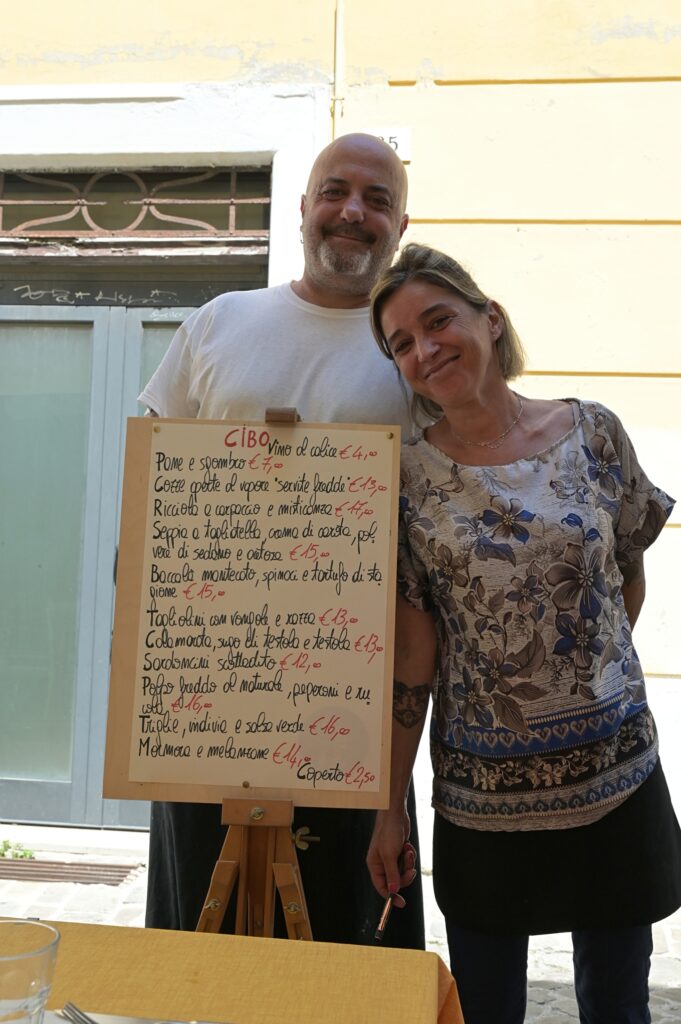 35
CIBO
Vino al calice € 4,00
Pane e sgombro € 7,00
Cozze aperte al vapore "servite fredde" € 13,00
Ricciola a carpaccio e misticanza € 17,00
Seppia a tagliatella, crema di carota, pol-
vere di sedano e aneto € 15,00
Baccalà mantecato, spinaci e tartufo di sta
gione € 15,00
Tagliolini con vongole e zucca € 13,00
Calamarata, sugo di testola e testola € 13,00
Sardoncini scottadito € 12,00
Polpo freddo al naturale, peperoni e ru
cola € 16,00
Triglie, indivia e salsa verde € 16,00
Mormora e melanzane € 14,00
Coperto € 2,50